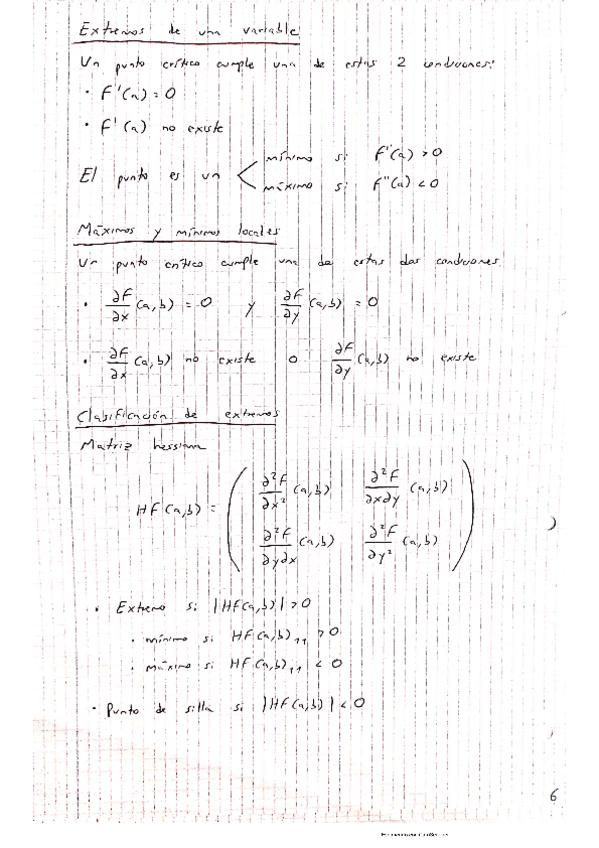 Extremos de una variable
Un punto crítico cumple una de estas 2 condiciones:
· F'(a) = 0
· F'(a) no existe
El punto es un < mínimo si F''(a) > 0
máximo si F''(a) < 0
Máximos y mínimos locales
Un punto crítico cumple una de estas dos condiciones
· ∂F/∂x (a,b) = 0 y ∂F/∂y (a,b) = 0
· ∂F/∂x (a,b) no existe o ∂F/∂y (a,b) no existe
Clasificación de extremos
Matriz hessiana
HF(a,b) = ( ∂²F/∂x² (a,b) ∂²F/∂x∂y (a,b)
∂²F/∂y∂x (a,b) ∂²F/∂y² (a,b) )
· Extremo si |HF(a,b)| > 0
· mínimo si HF(a,b)₁₁ > 0
· máximo si HF(a,b)₁₁ < 0
· Punto de silla si |HF(a,b)| < 0
6